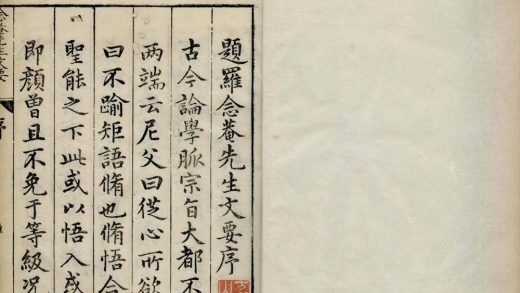 題羅念菴先生文要序
古今論學脈宗旨大都不
两端云尼父曰從心所欲
曰不踰矩語脩也脩悟合
聖能之下此或以悟入或
即顔曾且不免于等級况
序